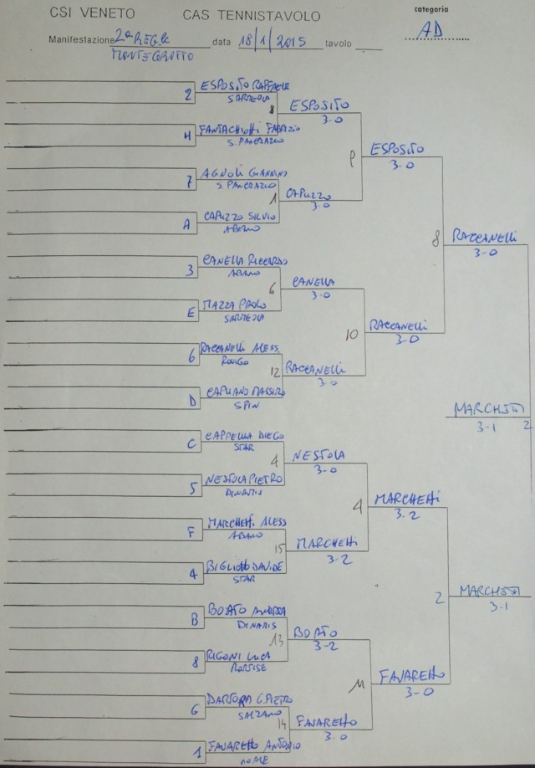 CSI VENETO CAS TENNISTAVOLO categoria
AD
Manifestazione 2ª REG.le data 18/1/2015 tavolo
MONTEGROTTO
2 ESPOSITO RAFFAELE
SARMEOLA
8 ESPOSITO
3-0
H FANTACHIOTTI FABRIZIO
S. PANCRAZIO
ESPOSITO
3-0
7 AGNOLI GIANNINO
S. PANCRAZIO
1 CAPUZZO
3-0
A CAPUZZO SILVIO
ABANO
8 RACCANELLI
3-0
3 CANELLA RICCARDO
ABANO
6 CANELLA
3-0
E MAZZA PAOLO
SARMEOLA
10 RACCANELLI
3-0
6 RACCANELLI ALESS
ROVIGO
12 RACCANELLI
3-0
D CAPUANO MASSIMO
SPIN
MARCHETTI
3-1 2
C CAPPELLA DIEGO
STAR
4 NESTOLA
3-0
5 NESTOLA PIETRO
DINAMIS
4 MARCHETTI
3-2
F MARCHETTI ALESS
ABANO
15 MARCHETTI
3-2
4 DAVIDE
STAR
2 MARCHETTI
3-1
B BOATO ANDREA
DINAMIS
13 BOATO
3-2
8 RIGONI LUCA
11 FAVARETTO
3-0
G
SALZANO
14 FAVARETTO
3-0
1 FAVARETTO ANTONIO
NOALE